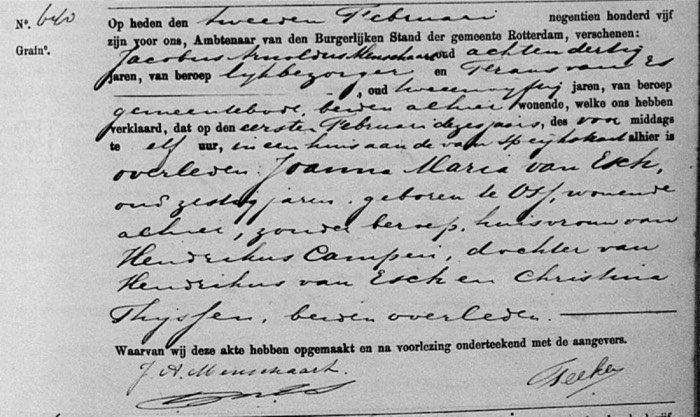 Nº. 640
Grafnº.
Op heden den tweeden Februari negentien honderd vijf
zijn voor ons, Ambtenaar van den Burgerlijken Stand der gemeente Rotterdam, verschenen:
Jacobus Arnoldus Menschaart oud achtendertig
jaren, van beroep lijkbezorger en Frans van Es
, oud tweeenvijftig jaren, van beroep
gemeentebode, beiden alhier wonende, welke ons hebben
verklaard, dat op den eersten Februari dezes jaars, des voor middags
te elf uur, in een huis aan de van Speijkstraat alhier is
overleden: Joanna Maria van Esch,
oud zestig jaren, geboren te Oss, wonende
alhier, zonder beroep, huisvrouw van
Hendrikus Campen, dochter van
Hendrikus van Esch en Christina
Thijssen, beiden overleden.
Waarvan wij deze akte hebben opgemaakt en na voorlezing onderteekend met de aangevers.
J A Menschaart